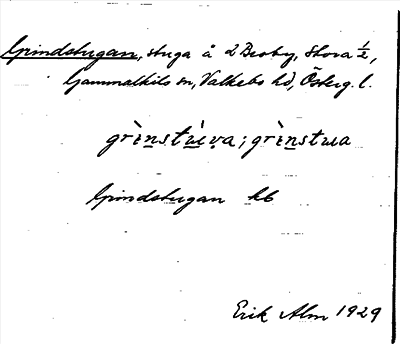 Grindstugan, stuga å 2 Broby, Stora 1/2,
Gammalkils sn, Valkebo hd, Österg. l.
grènstẁeva; grènstwa
Grindstugan kb
Erik Alm 1929